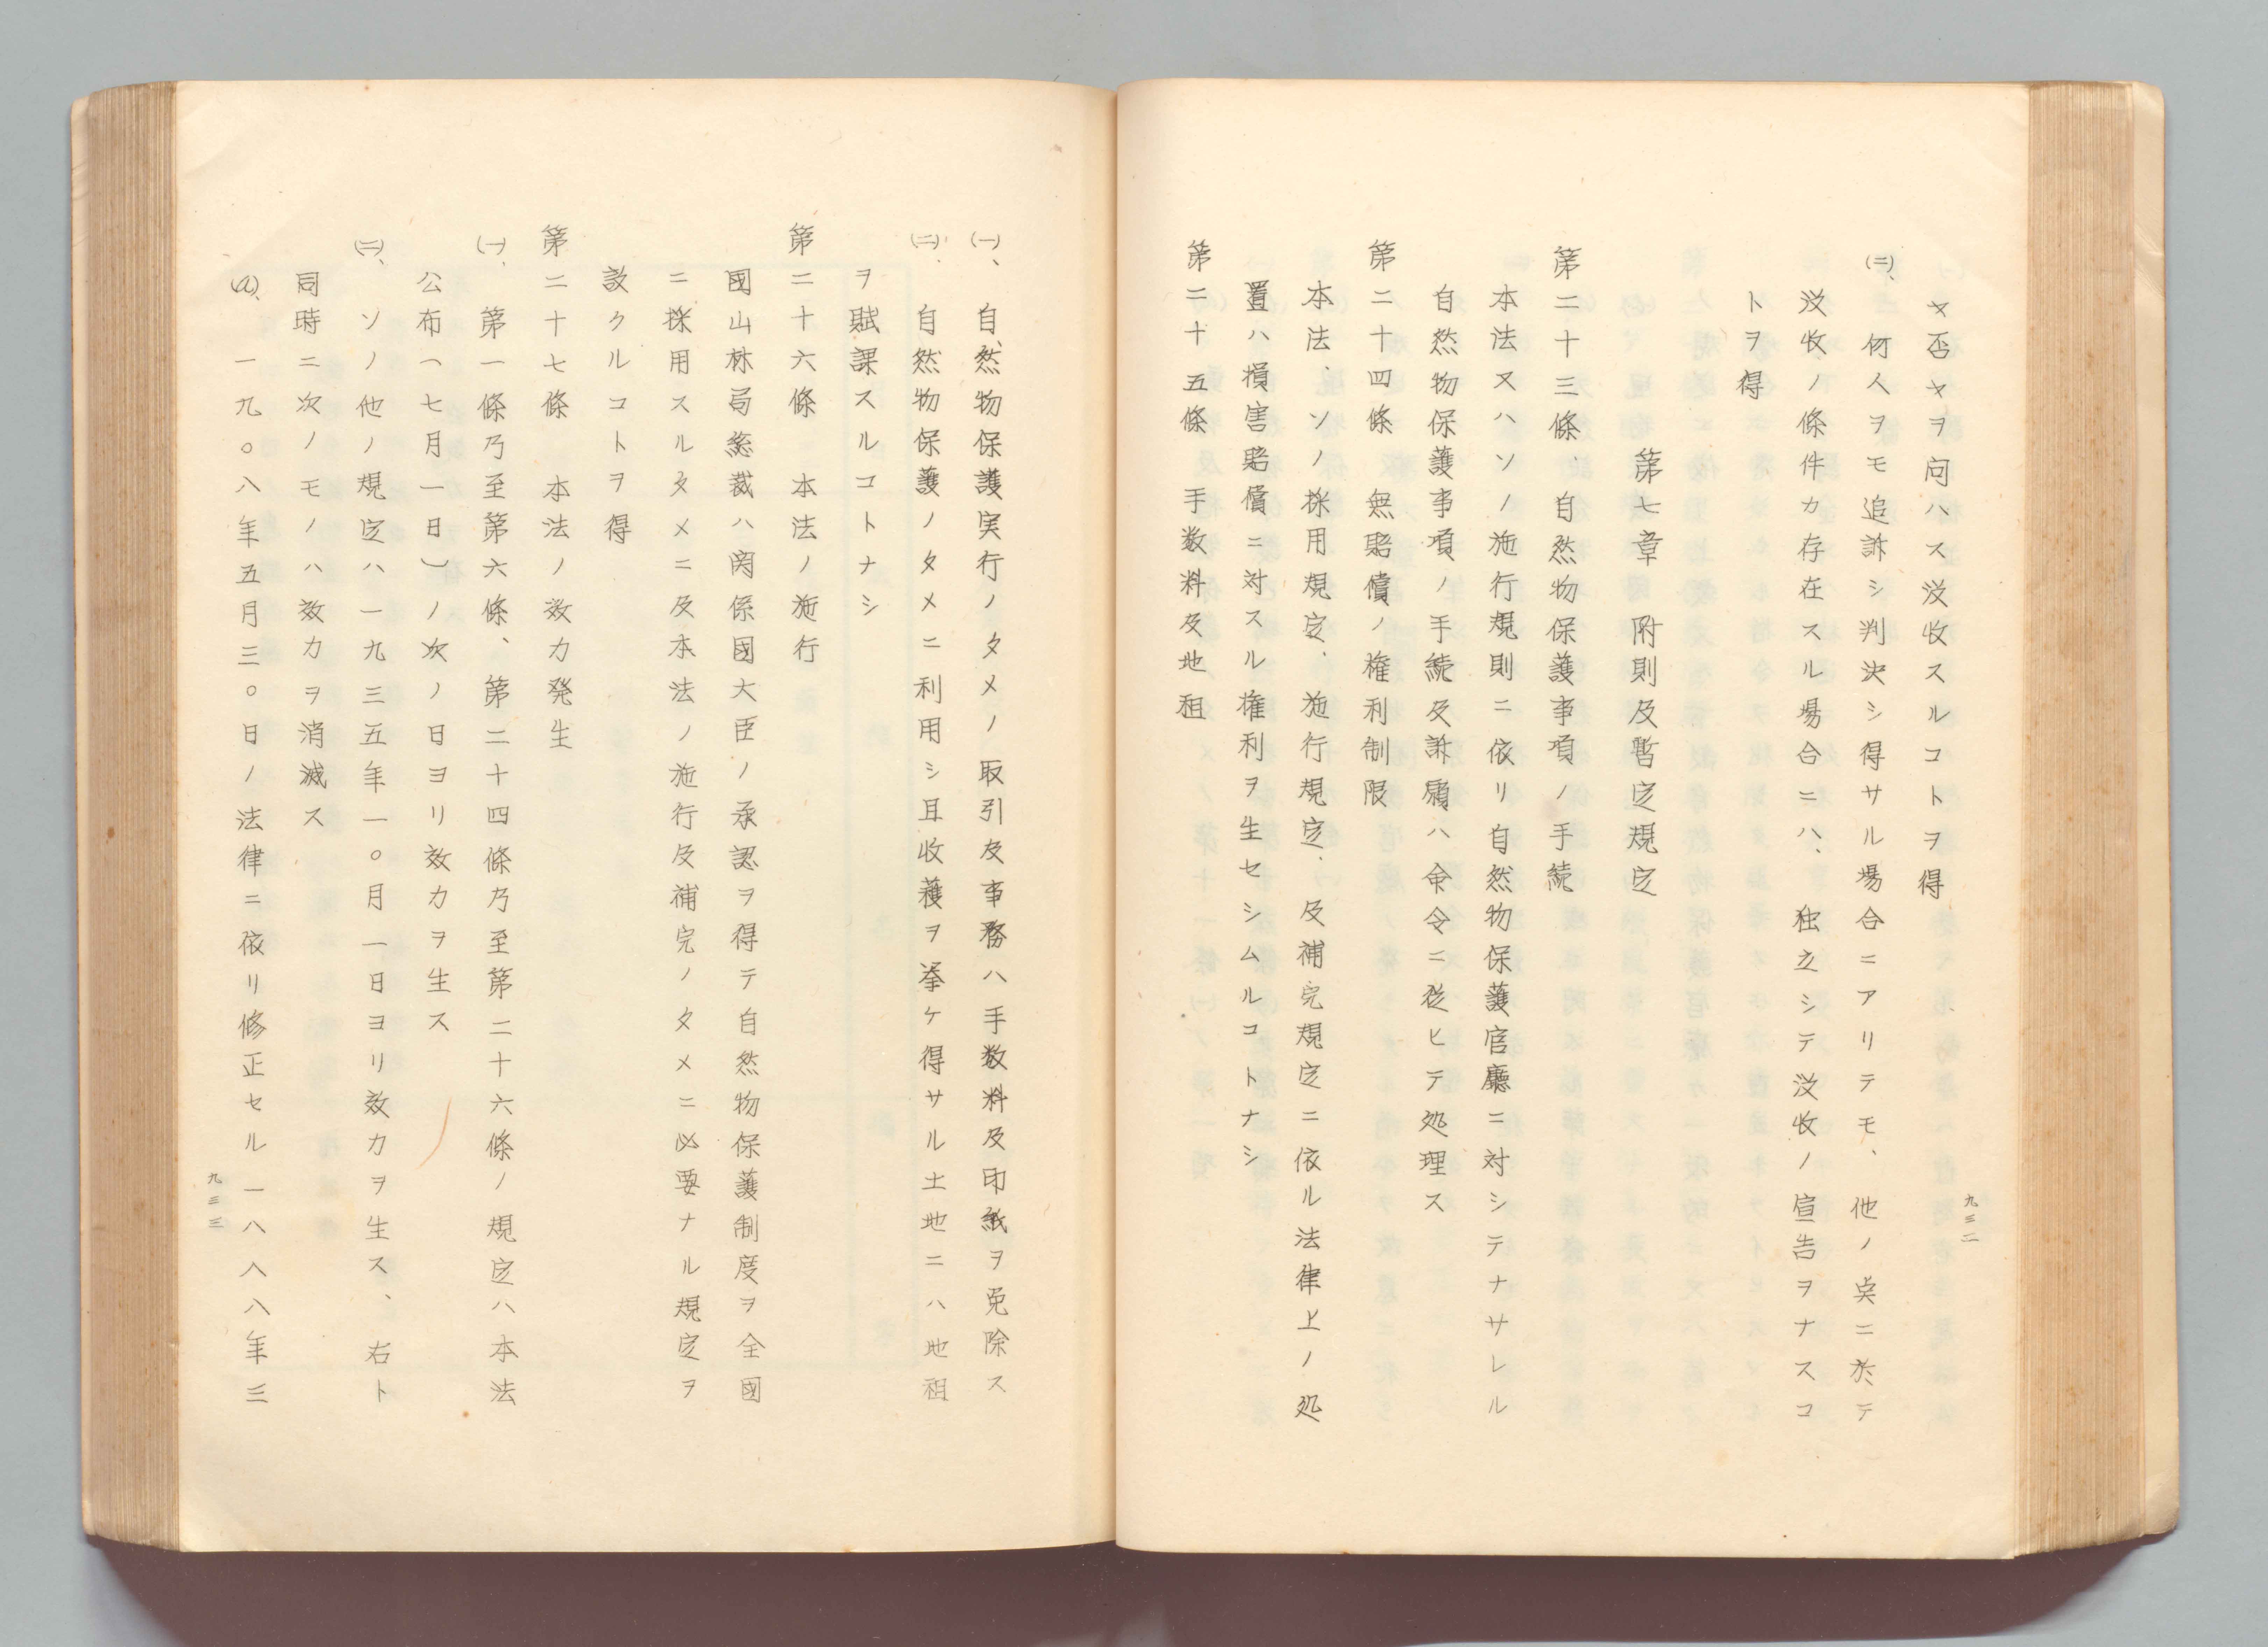 ヤ否ヤヲ问ハス没收スルコトヲ得
(二)、何人ヲモ追訴シ判決シ得サル場合ニアリテモ、他ノ㚑ニ於テ
没收ノ條件カ存在スル場合ニハ、独立シテ没收ノ宣告ヲナスコ
トヲ得
第七章 附則及暫定規定
第二十三條、自然物保護事項ノ手続
本法又ハソノ施行規則ニ依リ自然物保護官廳ニ対シテナサレル
自然物保護事項ノ手続及訴願ハ命令ニ从ヒテ処理ス
第二十四條 無賠償ノ権利制限
本法、ソノ採用規定、施行規定、及補完規定ニ依ル法律上ノ処
置ハ損害賠償ニ対スル権利ヲ生セシムルコトナシ
第二十五條 手数料及地租
九三二
(一)、自然物保護実行ノタメノ取引及事務ハ手数料及印紙ヲ免除ス
(二)、自然物保護ノタメニ利用シ且收穫ヲ挙ケ得サル土地ニハ地租
ヲ賦課スルコトナシ
第二十六條 本法ノ施行
國山林局総裁ハ関係國大臣ノ承認ヲ得テ自然物保護制度ヲ全國
ニ採用スルタメニ及本法ノ施行及補完ノタメニ必要ナル規定ヲ
設クルコトヲ得
第二十七條 本法ノ效力発生
(一)、第一條乃至第六條、第二十四條乃至第二十六條ノ規定ハ本法
公布(七月一日)ノ次ノ日ヨリ效力ヲ生ス
(二)、ソノ他ノ規定ハ一九三五年一〇月一日ヨリ效力ヲ生ス、右ト
同時ニ次ノモノハ效力ヲ消滅ス
(a)、一九〇八年五月三〇日ノ法律ニ依リ修正セル一八八八年三
九三三